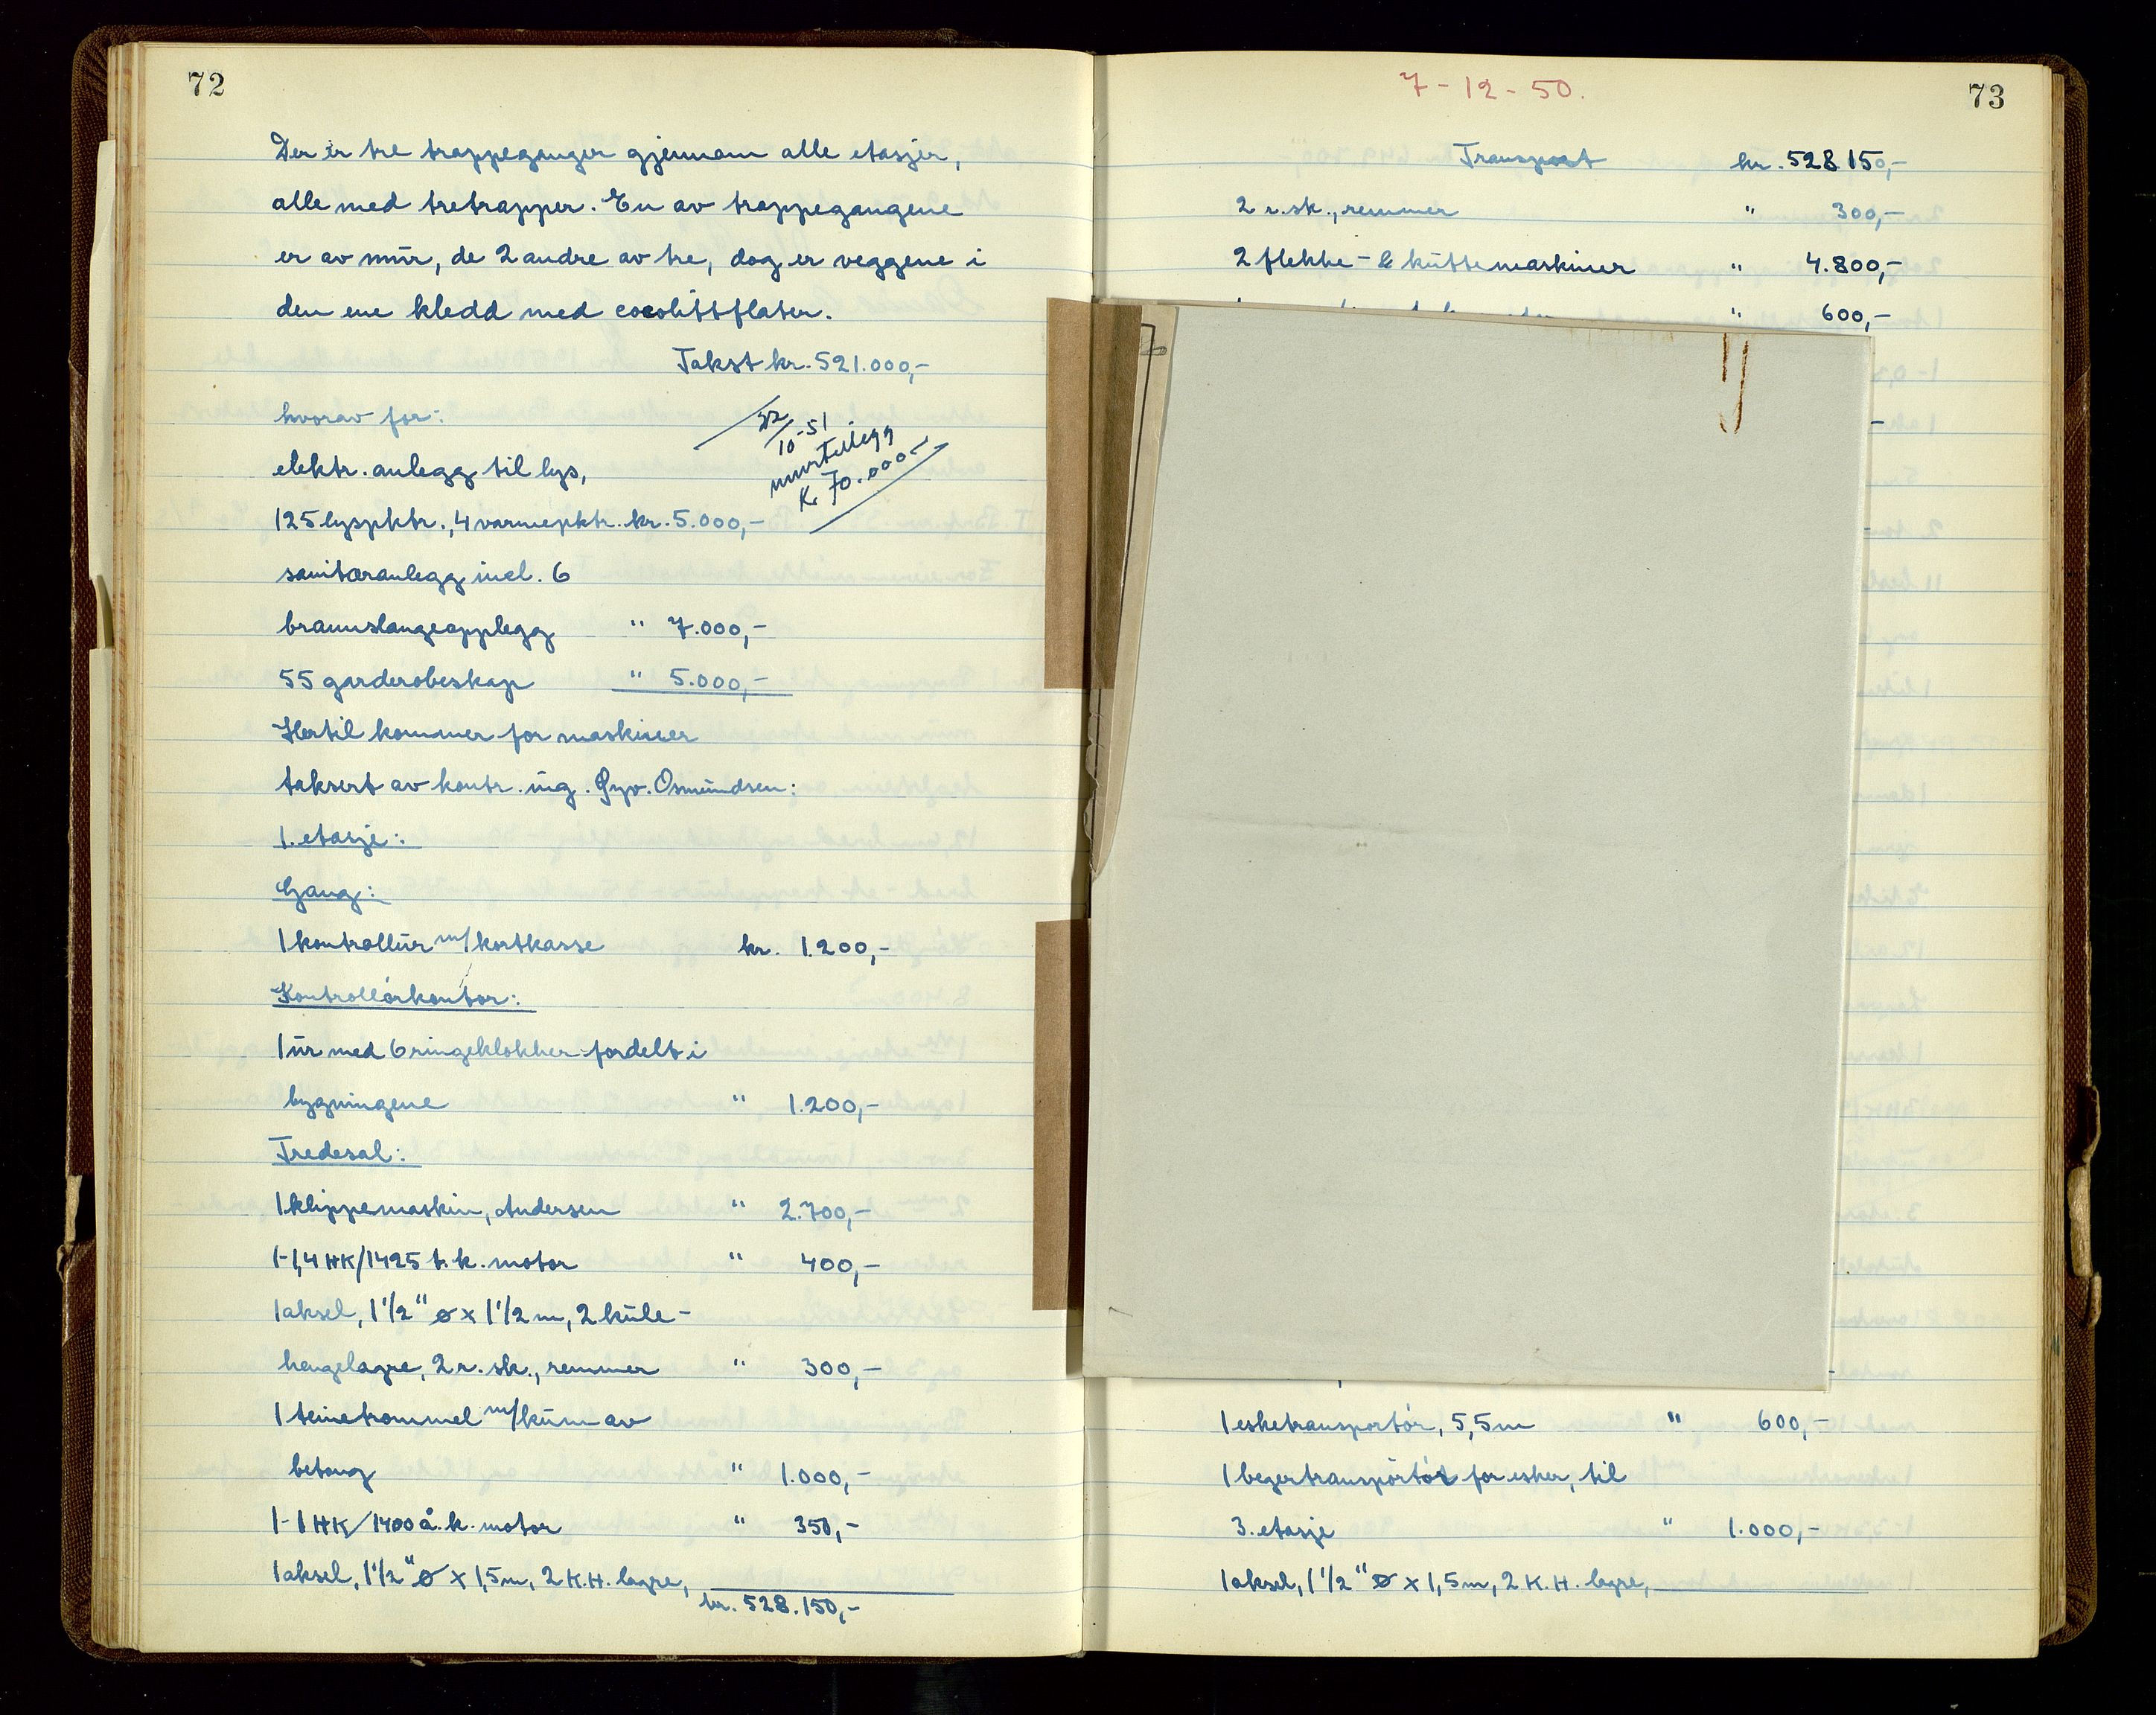 72
Der er tre trappeganger gjennom alle etasjer,
alle med tretrapper. En av trappegangene
er av mur, de 2 andre av tre, dog er veggene i
den ene kledd med cocolittflater.
Takst kr. 521.000,-
hvorav for:
22/10-51
murtillegg
K. 70.000.-
elektr. anlegg til lys,
125 lyspktr., 4 varmepktr. kr. 5.000,-
sanitæranlegg incl. 6
brannslangeopplegg " 7.000,-
55 garderobeskap " 5.000,-
Hertil kommer for maskiner
taksert av kontr. ing. Osmundsen:
1. etasje:
Gang:
1 kontrollur m/kortkasse kr. 1.200,-
Kontrollørkontor:
1 ur med 6 ringeklokker fordelt i
bygningene " 1.200,-
Tredesal:
1 klippemaskin, Andersen " 2.700,-
1-1,4 HK/1425 t. k. motor " 400,-
1 aksel, 1 1/2" ø x 1 1/2 m, 2 kule-
hengelagre, 2 r. sk., remmer " 300,-
1 teinetrommel m/kum av
betong " 1.000,-
1-1 HK/1400 å. k. motor " 350,-
1 aksel, 1 1/2" ø x 1,5 m, 2 K.H. lagre,
kr. 528.150,-
7-12-50.
73
Transport kr. 528.150,-
2 r. sk., remmer " 300,-
2 flekke- & kuttemaskiner " 4.800,-
" 600,-
1 esketransportør, 5,5 m " 600,-
1 begertransportør for esker, til
3. etasje " 1.000,-
1 aksel, 1 1/2" ø x 1,5 m, 2 K.H. lagre,